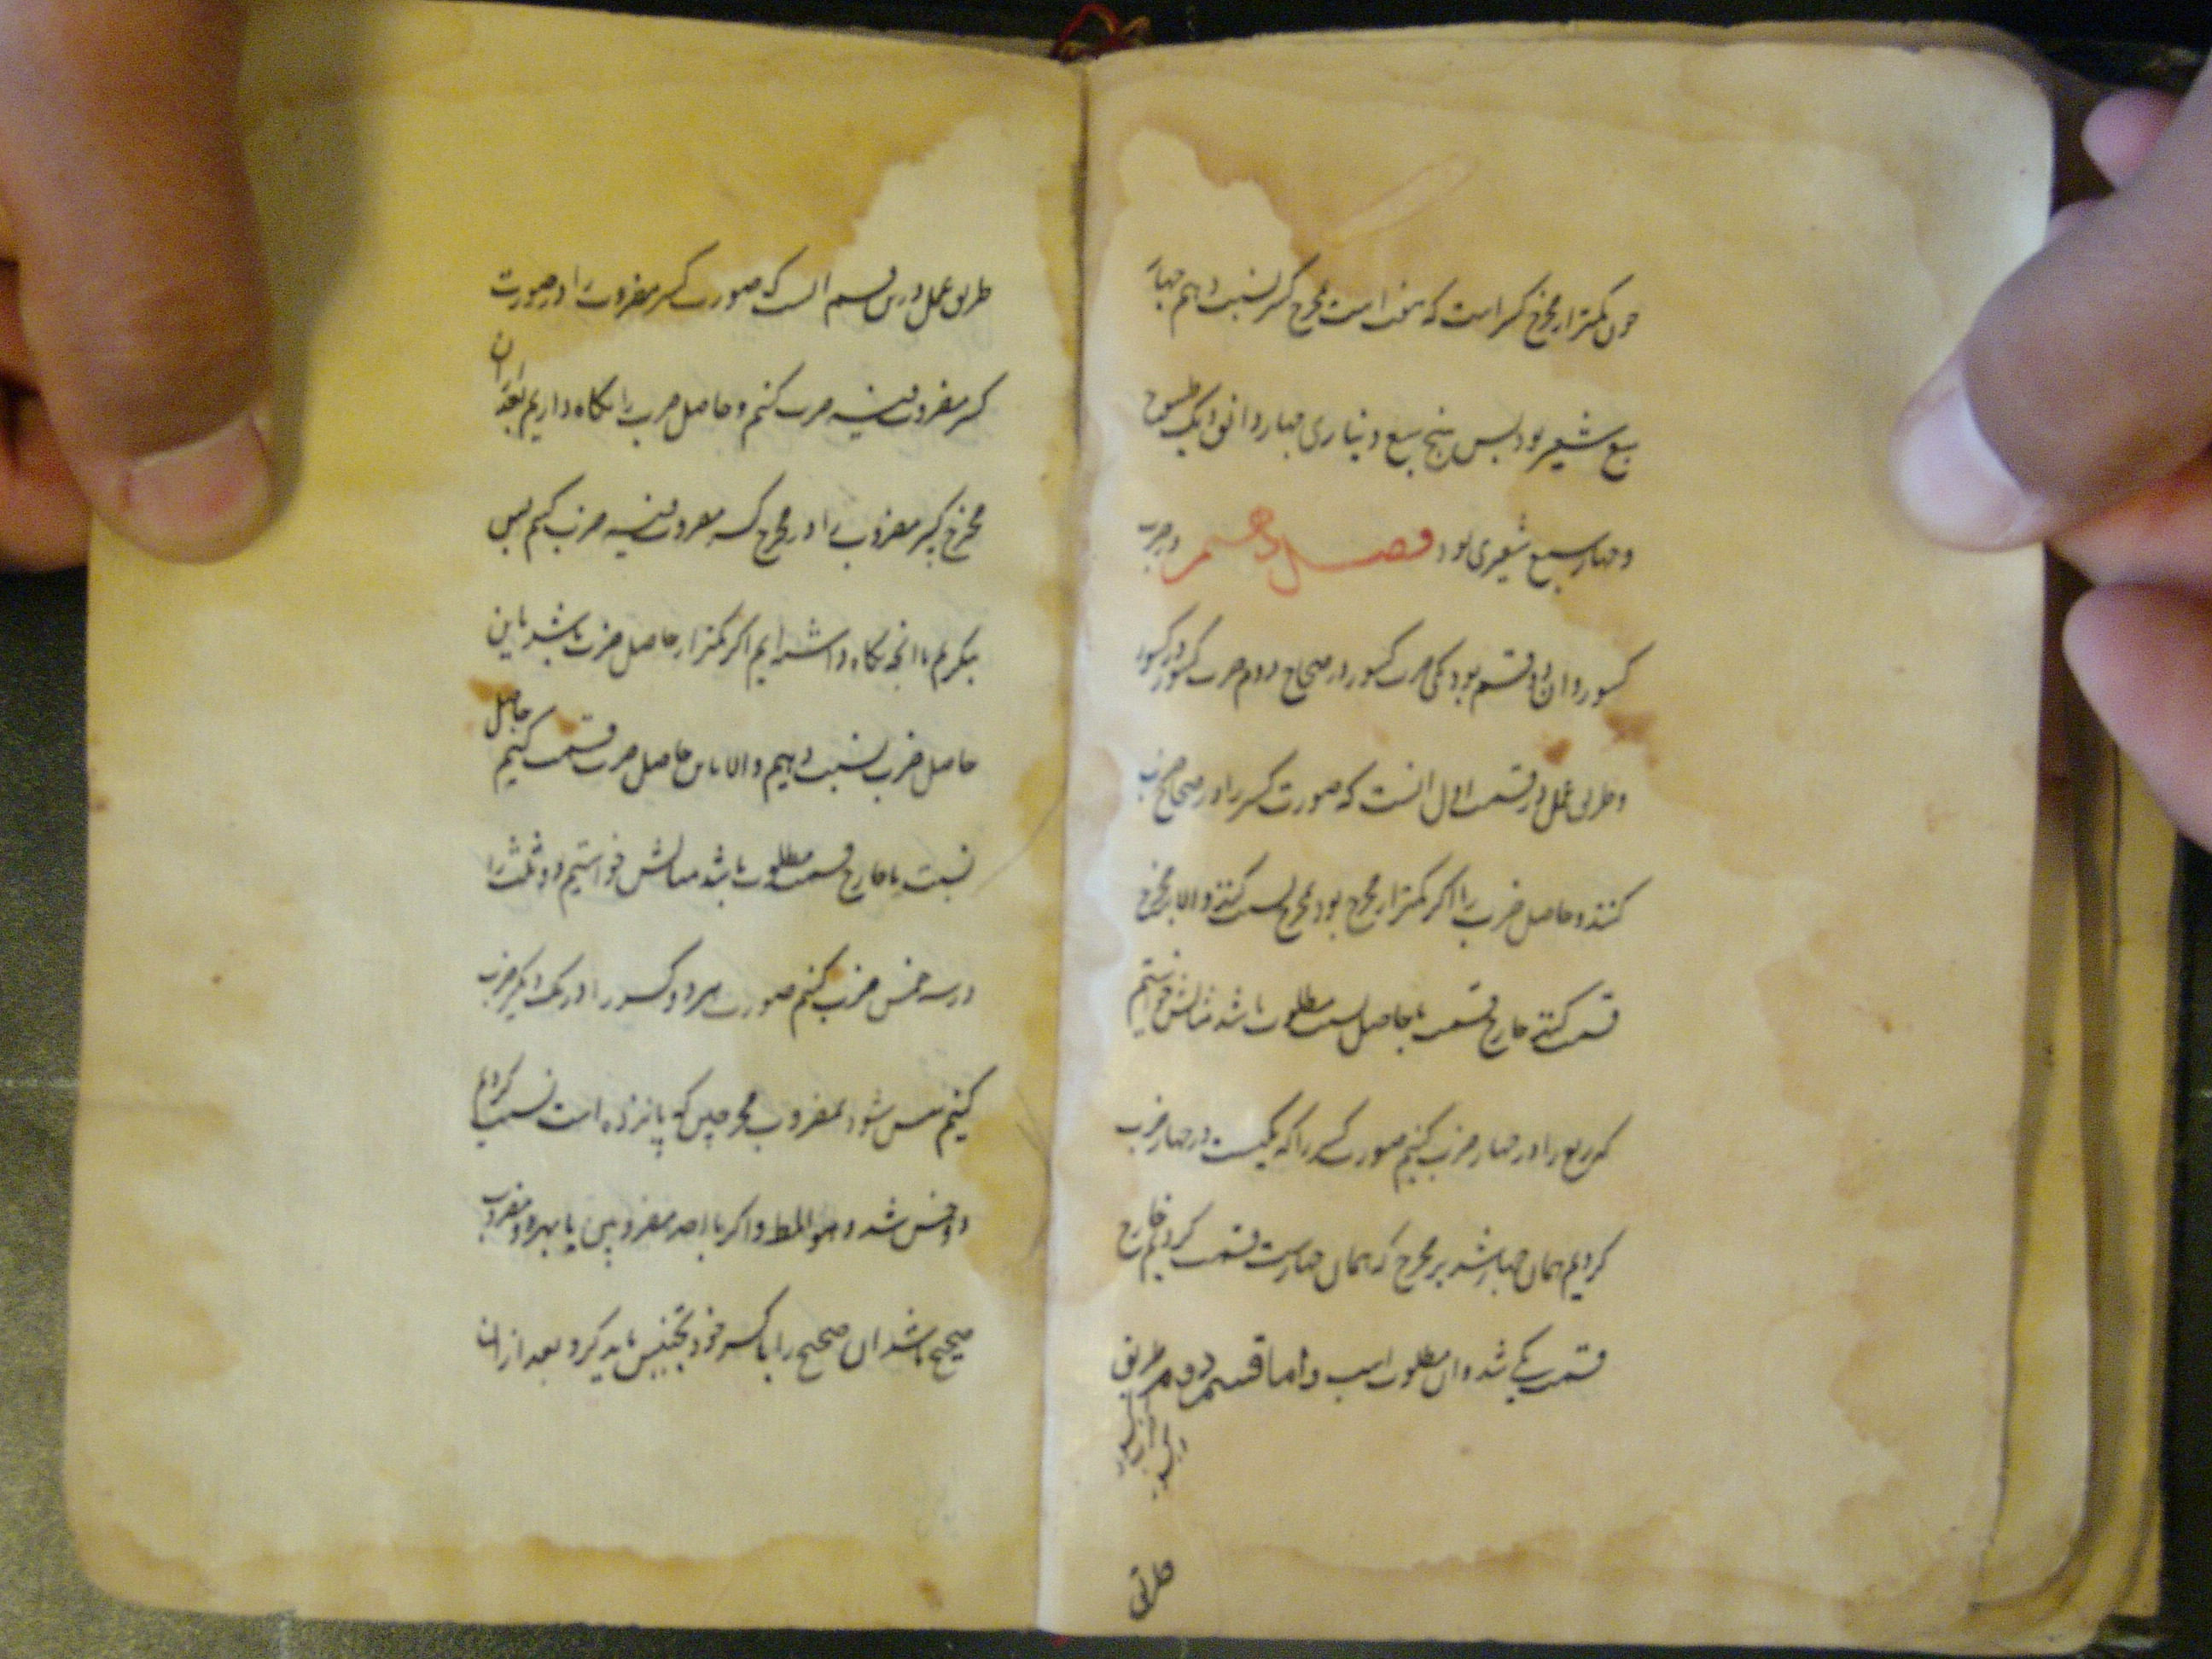 چون کمتر از مخرج کسر است که هفت است بمخرج کسر نسبت دهیم چهار
سبع شعیر بود پس پنج سبع دیناری چهار دانق و یک طسوج
و چهار سبع شعیری بود فصل دهم در ضرب
کسور و آن دو قسم بود یکی ضرب کسور در صحاح دوم ضرب کسور در کسور
و طریق عمل در قسمت اول انست که صورت کسر را در صحاح ضرب
کنند و حاصل ضرب را اگر کمتر از مخرج بود بمخرج نسبت کنند و الا بر مخرج
قسمت کنند خارج قسمت یا حاصل نسبت مطلوب باشد مثالش خواستیم
که ربع را در چهار ضرب کنیم صورت کسر را که یکیست در چهار ضرب
کردیم همان چهار شد بر مخرج که همان چهارست قسمت کردیم خارج
قسمت یکی شد و ان مطلوب است و اما قسم دوم طریق
طریق
طریق عمل درین قسم انست که صورت کسر مضروب را در صورت
کسر مضروب فیه ضرب کنیم و حاصل ضرب را نگاه داریم بعد از ان
مخرج کسر مضروب را در مخرج کسر مضروب فیه ضرب کنیم پس
بنگریم تا انچه نگاه داشته‌ایم اگر کمتر از حاصل ضرب باشد باین
حاصل ضرب نسبت دهیم و الا باین حاصل ضرب قسمت کنیم حاصل
نسبت یا خارج قسمت مطلوب باشد مثالش خواستیم دو ثلث را
در سه خمس ضرب کنیم صورت هر دو کسر را در یکدیگر ضرب
کنیم شش شود بمضروب مخرجین که پانزده است نسبت کردیم
دو خمس شد و هو المط و اگر با احد مضروبین یا بهر دو مضروب
صحیح باشد ان صحیح را با کسر خود تجنیس باید کرد و بعد از ان